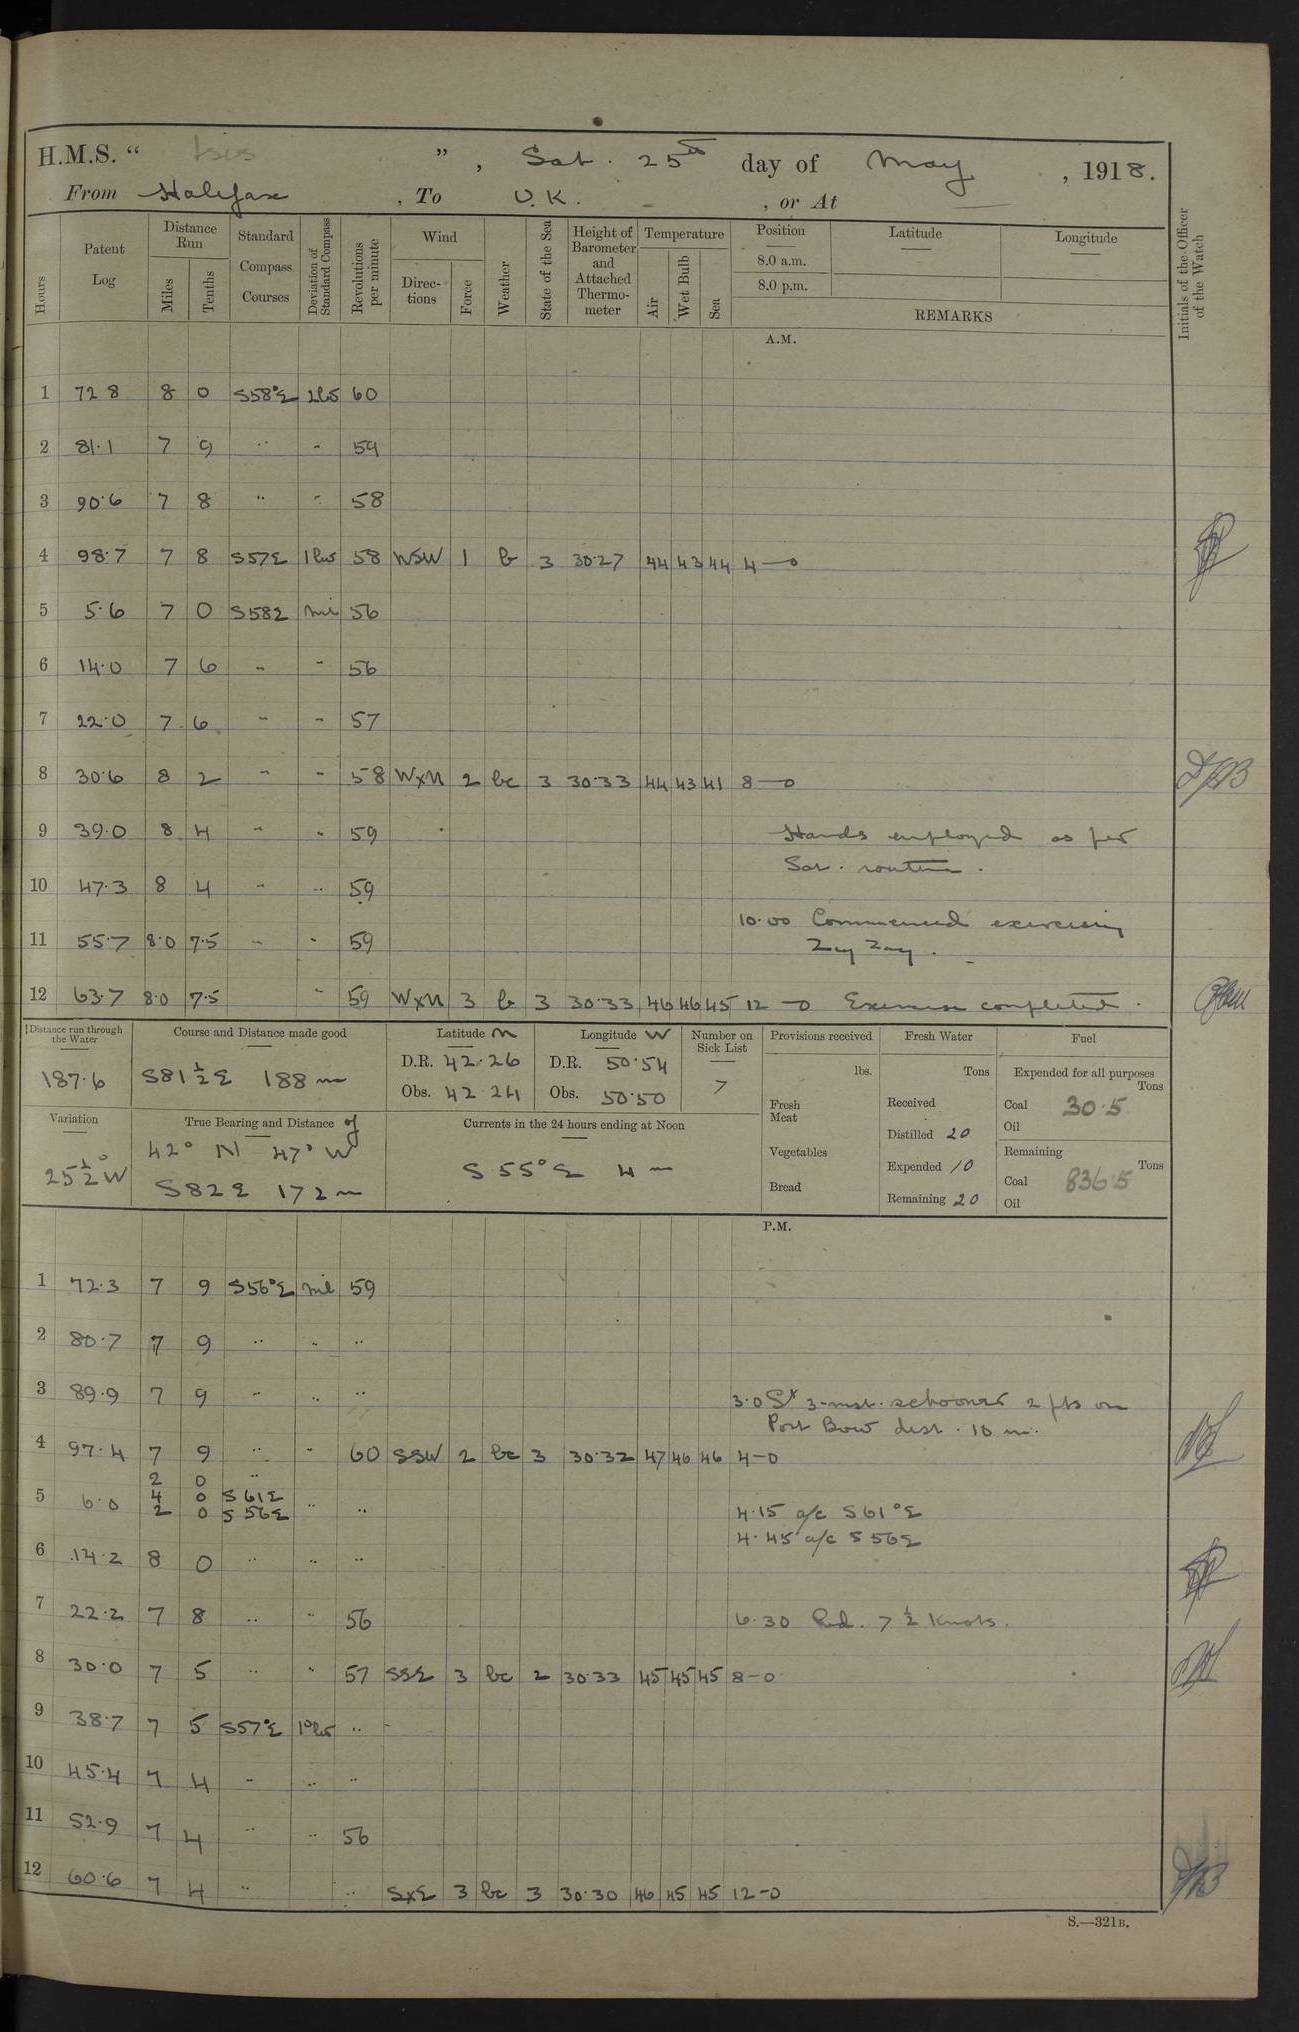 H.M.S. " Isis ", Sat. 25th day of May, 1918.
From Halifax, To U.K. - , or At —
Hours
Patent Log
Distance Run
Miles
Tenths
Standard Compass Courses
Deviation of Standard Compass
Revolutions per minute
Wind
Directions
Force
Weather
State of the Sea
Height of Barometer and Attached Thermometer
Temperature
Air
Wet Bulb
Sea
Position
8.0 a.m.
8.0 p.m.
Latitude
Longitude
REMARKS
Initials of the Officer of the Watch
A.M.
1 72 8 8 0 S58°E 60
2 81.1 7 9 .. - 59
3 90.6 7 8 .. - 58
4 98.7 7 8 S57E 58 WSW 1 b 3 30.27 44 43 44 4—0
5 5.6 7 0 S58E nil 56
6 14.0 7 6 .. - 56
7 22.0 7 6 .. - 57
8 30.6 8 2 .. - 58 WxN 2 bc 3 30.33 44 43 41 8—0
9 39.0 8 4 .. .. 59 Hands employed as per
Sat. routine.
10 47.3 8 4 .. .. 59
10.00 Commenced exercising
11 55.7 8.0 7.5 .. - 59
Zig Zag.
12 63.7 8.0 7.5 - 59 WxN 3 b 3 30.33 46 46 45 12—0 Exercise completed.
Distance run through the Water
187.6
Course and Distance made good
S81½E 188 m
Latitude N
D.R. 42.26
Obs. 42 24
Longitude W
D.R. 50.54
Obs. 50.50
Number on Sick List
7
Provisions received
lbs.
Fresh Meat
Vegetables
Bread
Fresh Water
Tons
Received
Distilled 20
Expended 10
Remaining 20
Fuel
Expended for all purposes
Tons
Coal 30.5
Oil
Remaining
Tons
Coal 836.5
Oil
Variation
25½°W
True Bearing and Distance of
42° N 47° W
S82E 172 m
Currents in the 24 hours ending at Noon
S 55° E 4 m
P.M.
1 72.3 7 9 S56°E nil 59
2 80.7 7 9 .. .. ..
3 89.9 7 9 .. .. .. 3.0 St 3-mst. schooner 2 pts on
Port Bow dist. 10 m.
4 97.4 7 9 .. - 60 SSW 2 bc 3 30.32 47 46 46 4-0
2 0 ..
5 6.0 4 0 S 61E .. ..
2 0 S 56E 4.15 a/c S61°E
4.45 a/c S56E
6 14.2 8 0 .. .. ..
7 22.2 7 8 .. .. 56 6.30 Red. 7½ Knots.
8 30.0 7 5 .. .. 57 SSE 3 bc 2 30.33 45 45 45 8-0
9 38.7 7 5 S57°E ..
10 45.4 7 4 - .. ..
11 52.9 7 4 .. .. 56
12 60.6 7 4 .. .. SxE 3 bc 3 30.30 46 45 45 12-0
S.—321B.